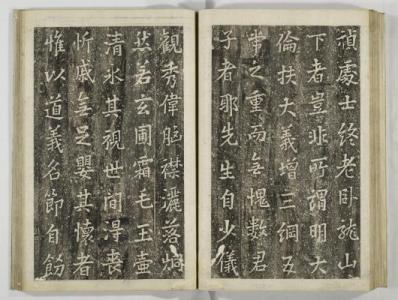 禎處士終老卧龍山
下者豈非所謂明大
倫扶大義增三綱五
常之重而無愧數君
子者耶先生自少儀
觀秀偉胸襟灑落炯
然若玄圃霜毛玉壺
清冰其視世間得喪
忻戚無足嬰其懷者
惟以道義名節自飭